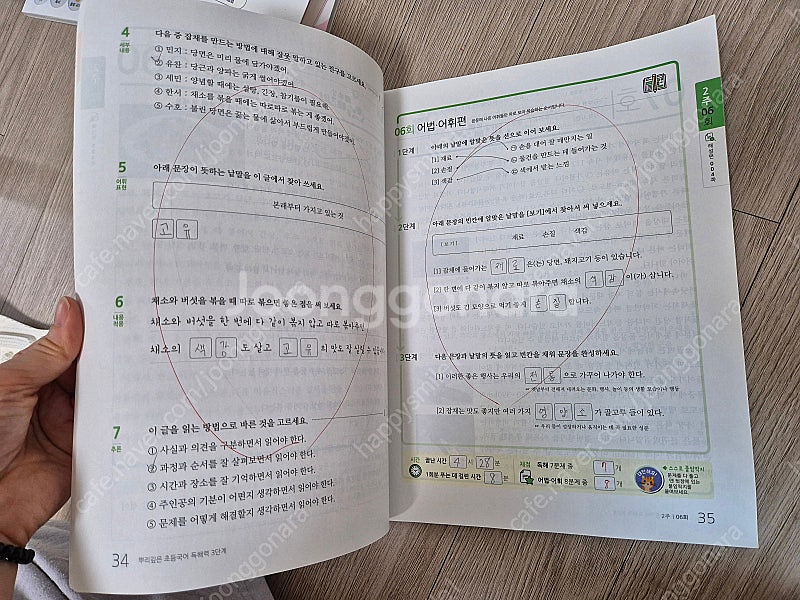 4
세부
내용
다음 중 잡채를 만드는 방법에 대해 잘못 말하고 있는 친구를 고르세요.
① 민지 : 당면은 미리 물에 담가야겠어.
② 유찬 : 당근과 양파는 굵게 썰어야겠어.
③ 세민 : 양념할 때에는 설탕, 간장, 참기름이 필요해.
④ 한서 : 채소를 볶을 때에는 따로따로 볶는 게 좋겠어.
⑤ 수호 : 불린 당면은 끓는 물에 삶아서 부드럽게 만들어야겠어.
5
어휘
표현
아래 문장이 뜻하는 낱말을 이 글에서 찾아 쓰세요.
본래부터 가지고 있는 것
고 유
6
내용
적용
채소와 버섯을 볶을 때 따로 볶으면 좋은 점을 써 보세요.
채소와 버섯을 한 번에 다 같이 볶지 않고 따로 볶아주면
채소의 색 감 도 살고 고 유 의 맛도 잘 살릴 수
7
추론
이 글을 읽는 방법으로 바른 것을 고르세요.
① 사실과 의견을 구분하면서 읽어야 한다.
② 과정과 순서를 잘 살펴보면서 읽어야 한다.
③ 시간과 장소를 잘 기억하면서 읽어야 한다.
④ 주인공의 기분이 어떤지 생각하면서 읽어야 한다.
⑤ 문제를 어떻게 해결할지 생각하면서 읽어야 한다.
34 뿌리깊은 초등국어 독해력 3단계
06회 어법·어휘편
1단계
아래의 낱말에 알맞은 뜻을 선으로 이어 보세요.
[1] 재료 ㉠ 손을 대어 잘 매만지는 일
[2] 손질 ㉡ 물건을 만드는 데 들어가는 것
[3] 색감 ㉢ 색에서 받는 느낌
2단계
아래 문장의 빈칸에 알맞은 낱말을 [보기]에서 찾아서 써 넣으세요.
[보기] 재료 손질 색감
[1] 잡채에 들어가는 재 료 은(는) 당면, 돼지고기 등이 있습니다.
[2] 한 번에 다 같이 볶지 않고 따로 볶아주면 채소의 색 감 이(가) 삽니다.
[3] 버섯도 긴 모양으로 먹기 좋게 손 질 합니다.
3단계
다음 문장과 낱말의 뜻을 읽고 빈칸을 채워 문장을 완성하세요.
[1] 이러한 좋은 행사는 우리의 전 통 으로 가꾸어 나가야 한다.
[2] 잡채는 맛도 좋지만 여러 가지 영 양 소 가 골고루 들어 있다.
시간 끝난 시간 4 시 28 분
1회분 푸는 데 걸린 시간 8 분
채점 독해 7문제 중 7 개
어법·어휘 8문제 중 8 개
스스로 붙임딱지
문제를 다 풀고
맨 뒷장에 있는
붙임딱지를
붙여보세요.
2주
06회
2주 | 06회 35
loonggonara
cafe.naver.com/loonggonara